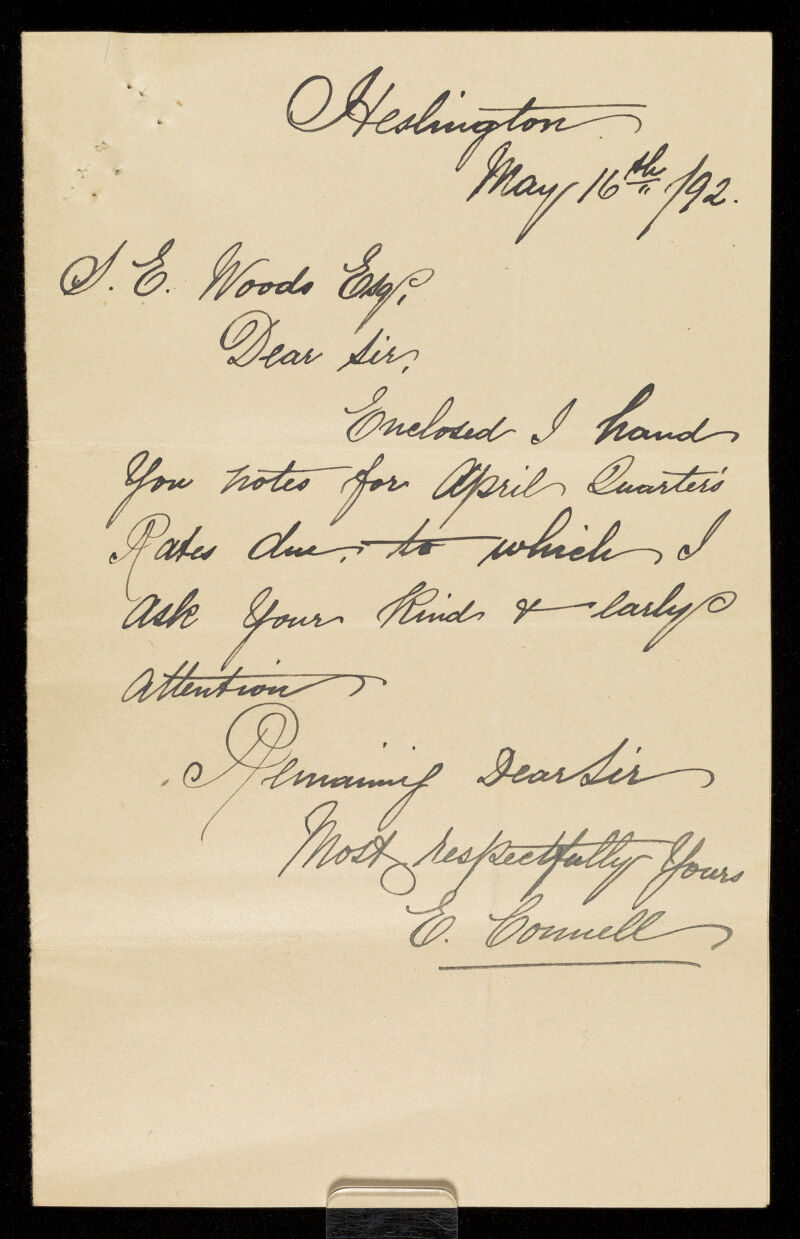 Heslington
May 16th /92.
S. E. Woods Esq,
Dear Sir,
Enclosed I hand
You notes for April Quarter's
Rates due, to which I
Ask Your Kind & early
Attention
Remaining Dear Sir
Most respectfully Yours
E. Connell